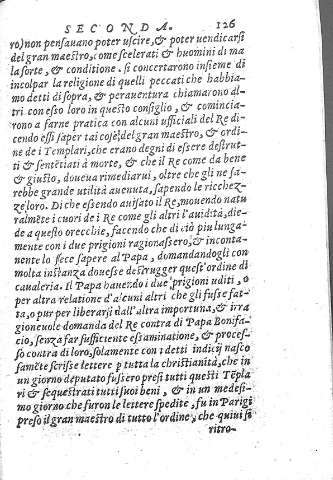 SECONDA. 126
ro) non pensauano poter uscire, & poter uendicarsi
del gran maestro, come scelerati & huomini di ma
la sorte, & conditione. si concertarono insieme di
incolpar la religione di quelli peccati che habbia-
mo detti di sopra, & perauentura chiamarono al-
tri con esso loro in questo consiglio, & comincia-
rono a farne pratica con alcuni ufficiali del Re di-
cendo essi saper tai cose del gran maestro, & ordi-
ne de i Templari, che erano degni di essere destrut-
ti & sentētiati à morte, & che il Re come da bene
& giusto, doueua rimediarui, oltre che gli ne sa-
rebbe grande utilità auenuta, sapendo le ricchez-
ze loro. Di che essendo auisato il Re, mouendo natu
ralmēte i cuori de i Re come gli altri l'auidità, die-
de a questo orecchie, facendo che di ciò piu lunga-
mente con i due prigioni ragionassero, & inconta-
nente lo fece sapere al Papa, domandandogli con
molta instanza douesse destrugger quest'ordine di
caualeria. Il Papa hauendo i due prigioni uditi, o
per altra relatione d'alcuni altri che gli fusse fat-
ta, o pur per liberarsi dall'altra importuna, & irra
gioneuole domanda del Re contra di Papa Bonifa-
cio, senza far sufficiente essaminatione, & proces-
so contra di loro, solamente con i detti indicij nasco
samēte scrisse lettere p tutta la christianità, che in
un giorno deputato fussero presi tutti questi Tēpla
ri & sequestrati tutti suoi beni, & in un medesi-
mo giorno che furon le lettere spedite, fu in Parigi
preso il gran maestro di tutto l'ordine, che quiui si
ritro-